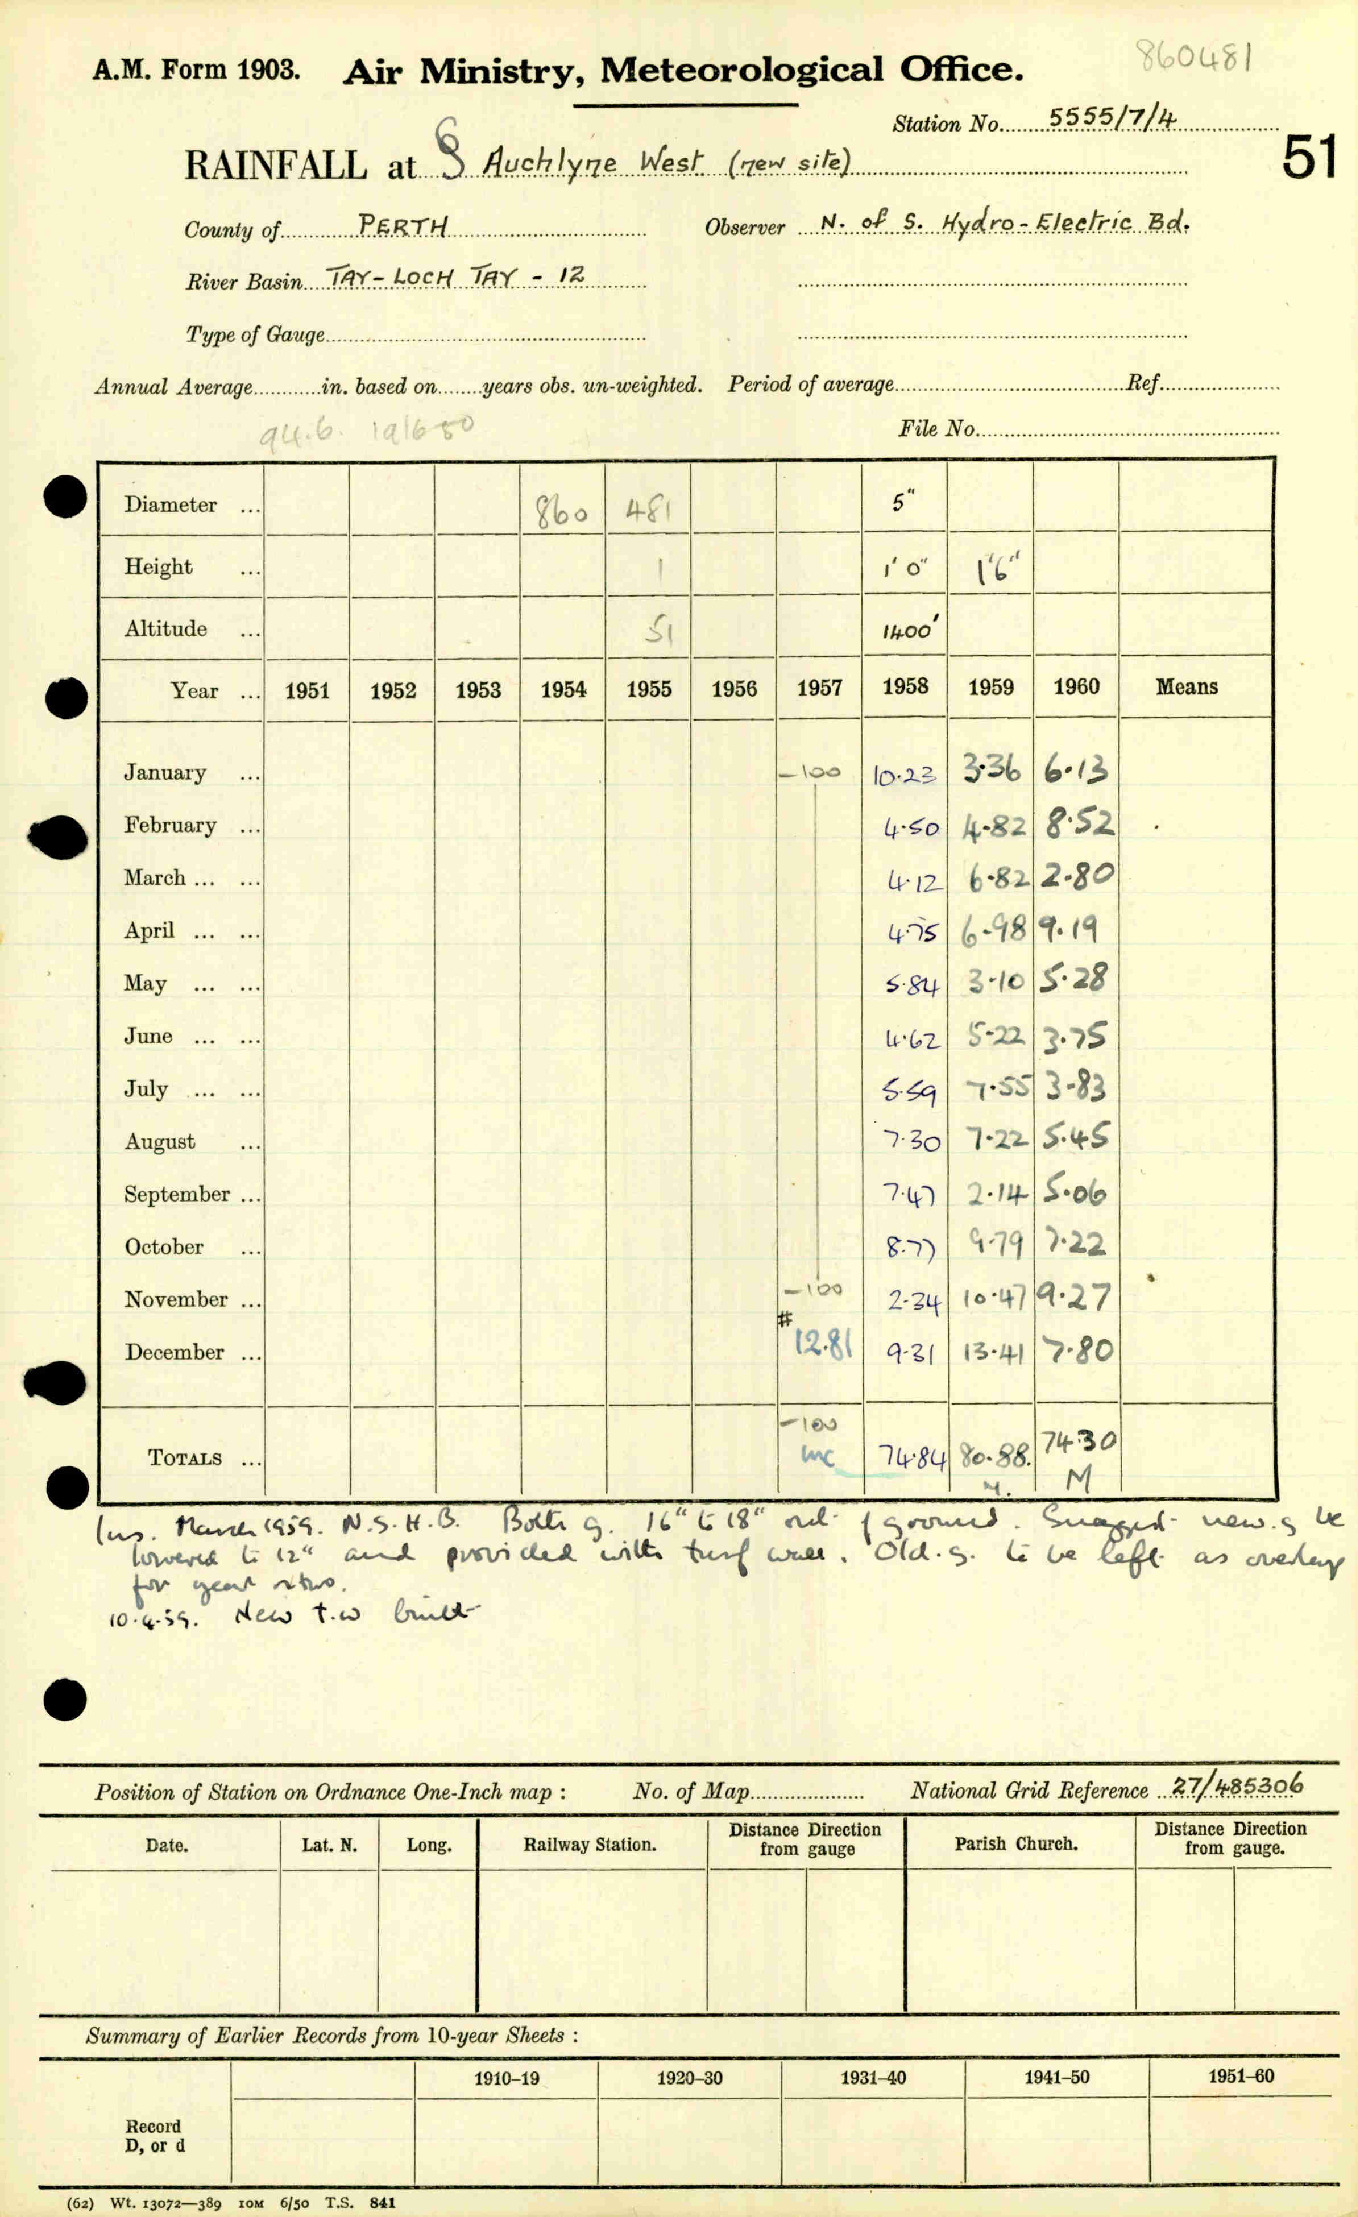 860481
A.M. Form 1903. Air Ministry, Meteorological Office.
Station No. 5555/7/4
51
RAINFALL at Auchlyne West (new site)
County of PERTH Observer N. of S. Hydro-Electric Bd.
River Basin TAY-LOCH TAY - 12
Type of Gauge
Annual Average in. based on years obs. un-weighted. Period of average Ref.
94.6. 1916-50
File No.
Diameter ... 860 481 5"
Height ... 1 1' 0" 1'6"
Altitude ... 51 1400'
Year ... 1951 1952 1953 1954 1955 1956 1957 1958 1959 1960 Means
January ... -100 10.23 3.36 6.13
February ... 4.50 4.82 8.52
March ... ... 4.12 6.82 2.80
April ... ... 4.75 6.98 9.19
May ... ... 5.84 3.10 5.28
June ... ... 4.62 5.22 3.75
July ... ... 5.59 7.55 3.83
August ... 7.30 7.22 5.45
September ... 7.47 2.14 5.06
October ... 8.77 9.79 7.22
November ... -100 2.34 10.47 9.27
December ... # 12.81 9.31 13.41 7.80
-100
TOTALS ... inc 74.84 80.88. 74.30
M. M
Ins. March 1959. N.S.H.B. Both g. 16" to 18" out of ground. Suggest new.g be
lowered to 12" and provided with turf wall. Old.g. to be left as overlap
for year
10.4.59. New t.w built
Position of Station on Ordnance One-Inch map : No. of Map National Grid Reference 27/485306
Date. Lat. N. Long. Railway Station. Distance Direction from gauge Parish Church. Distance Direction from gauge.
Summary of Earlier Records from 10-year Sheets :
1910–19 1920–30 1931–40 1941–50 1951–60
Record
D, or d
(62) Wt. 13072—389 10M 6/50 T.S. 841